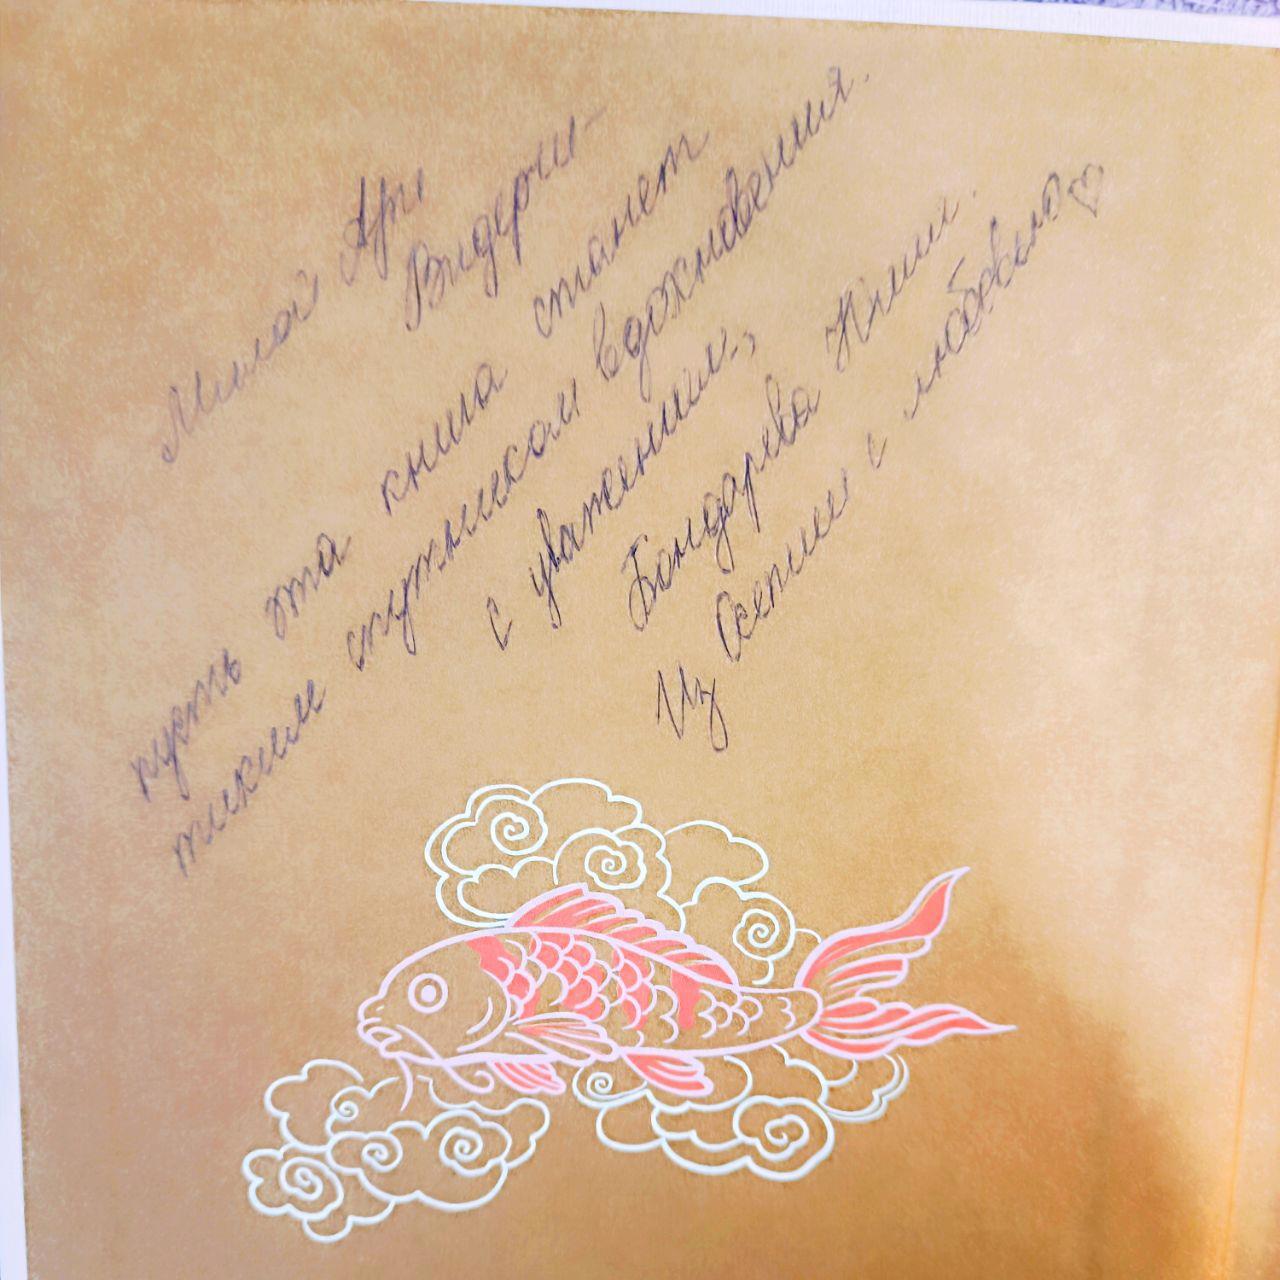 Милой Ари
Видерчи-
пусть эта книга станет
тихим спутником вдохновения.
с уважением,
Бондарева Юлия.
Из Осетии с любовью♡